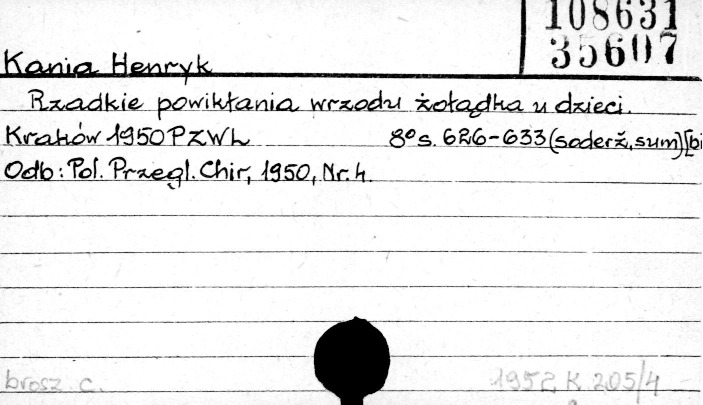 108631
35607
Kania Henryk
Rzadkie powikłania wrzodu żołądka u dzieci.
Kraków 1950 PZWL 8° s. 626-633 (soderž, sum) [bi
Odb: Pol. Przegl. Chir, 1950, Nr. 4.
brosz. c. 1952 K 205/4